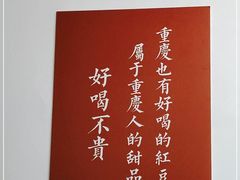 重慶也有好喝的紅豆
屬于重慶人的甜品
好喝不貴